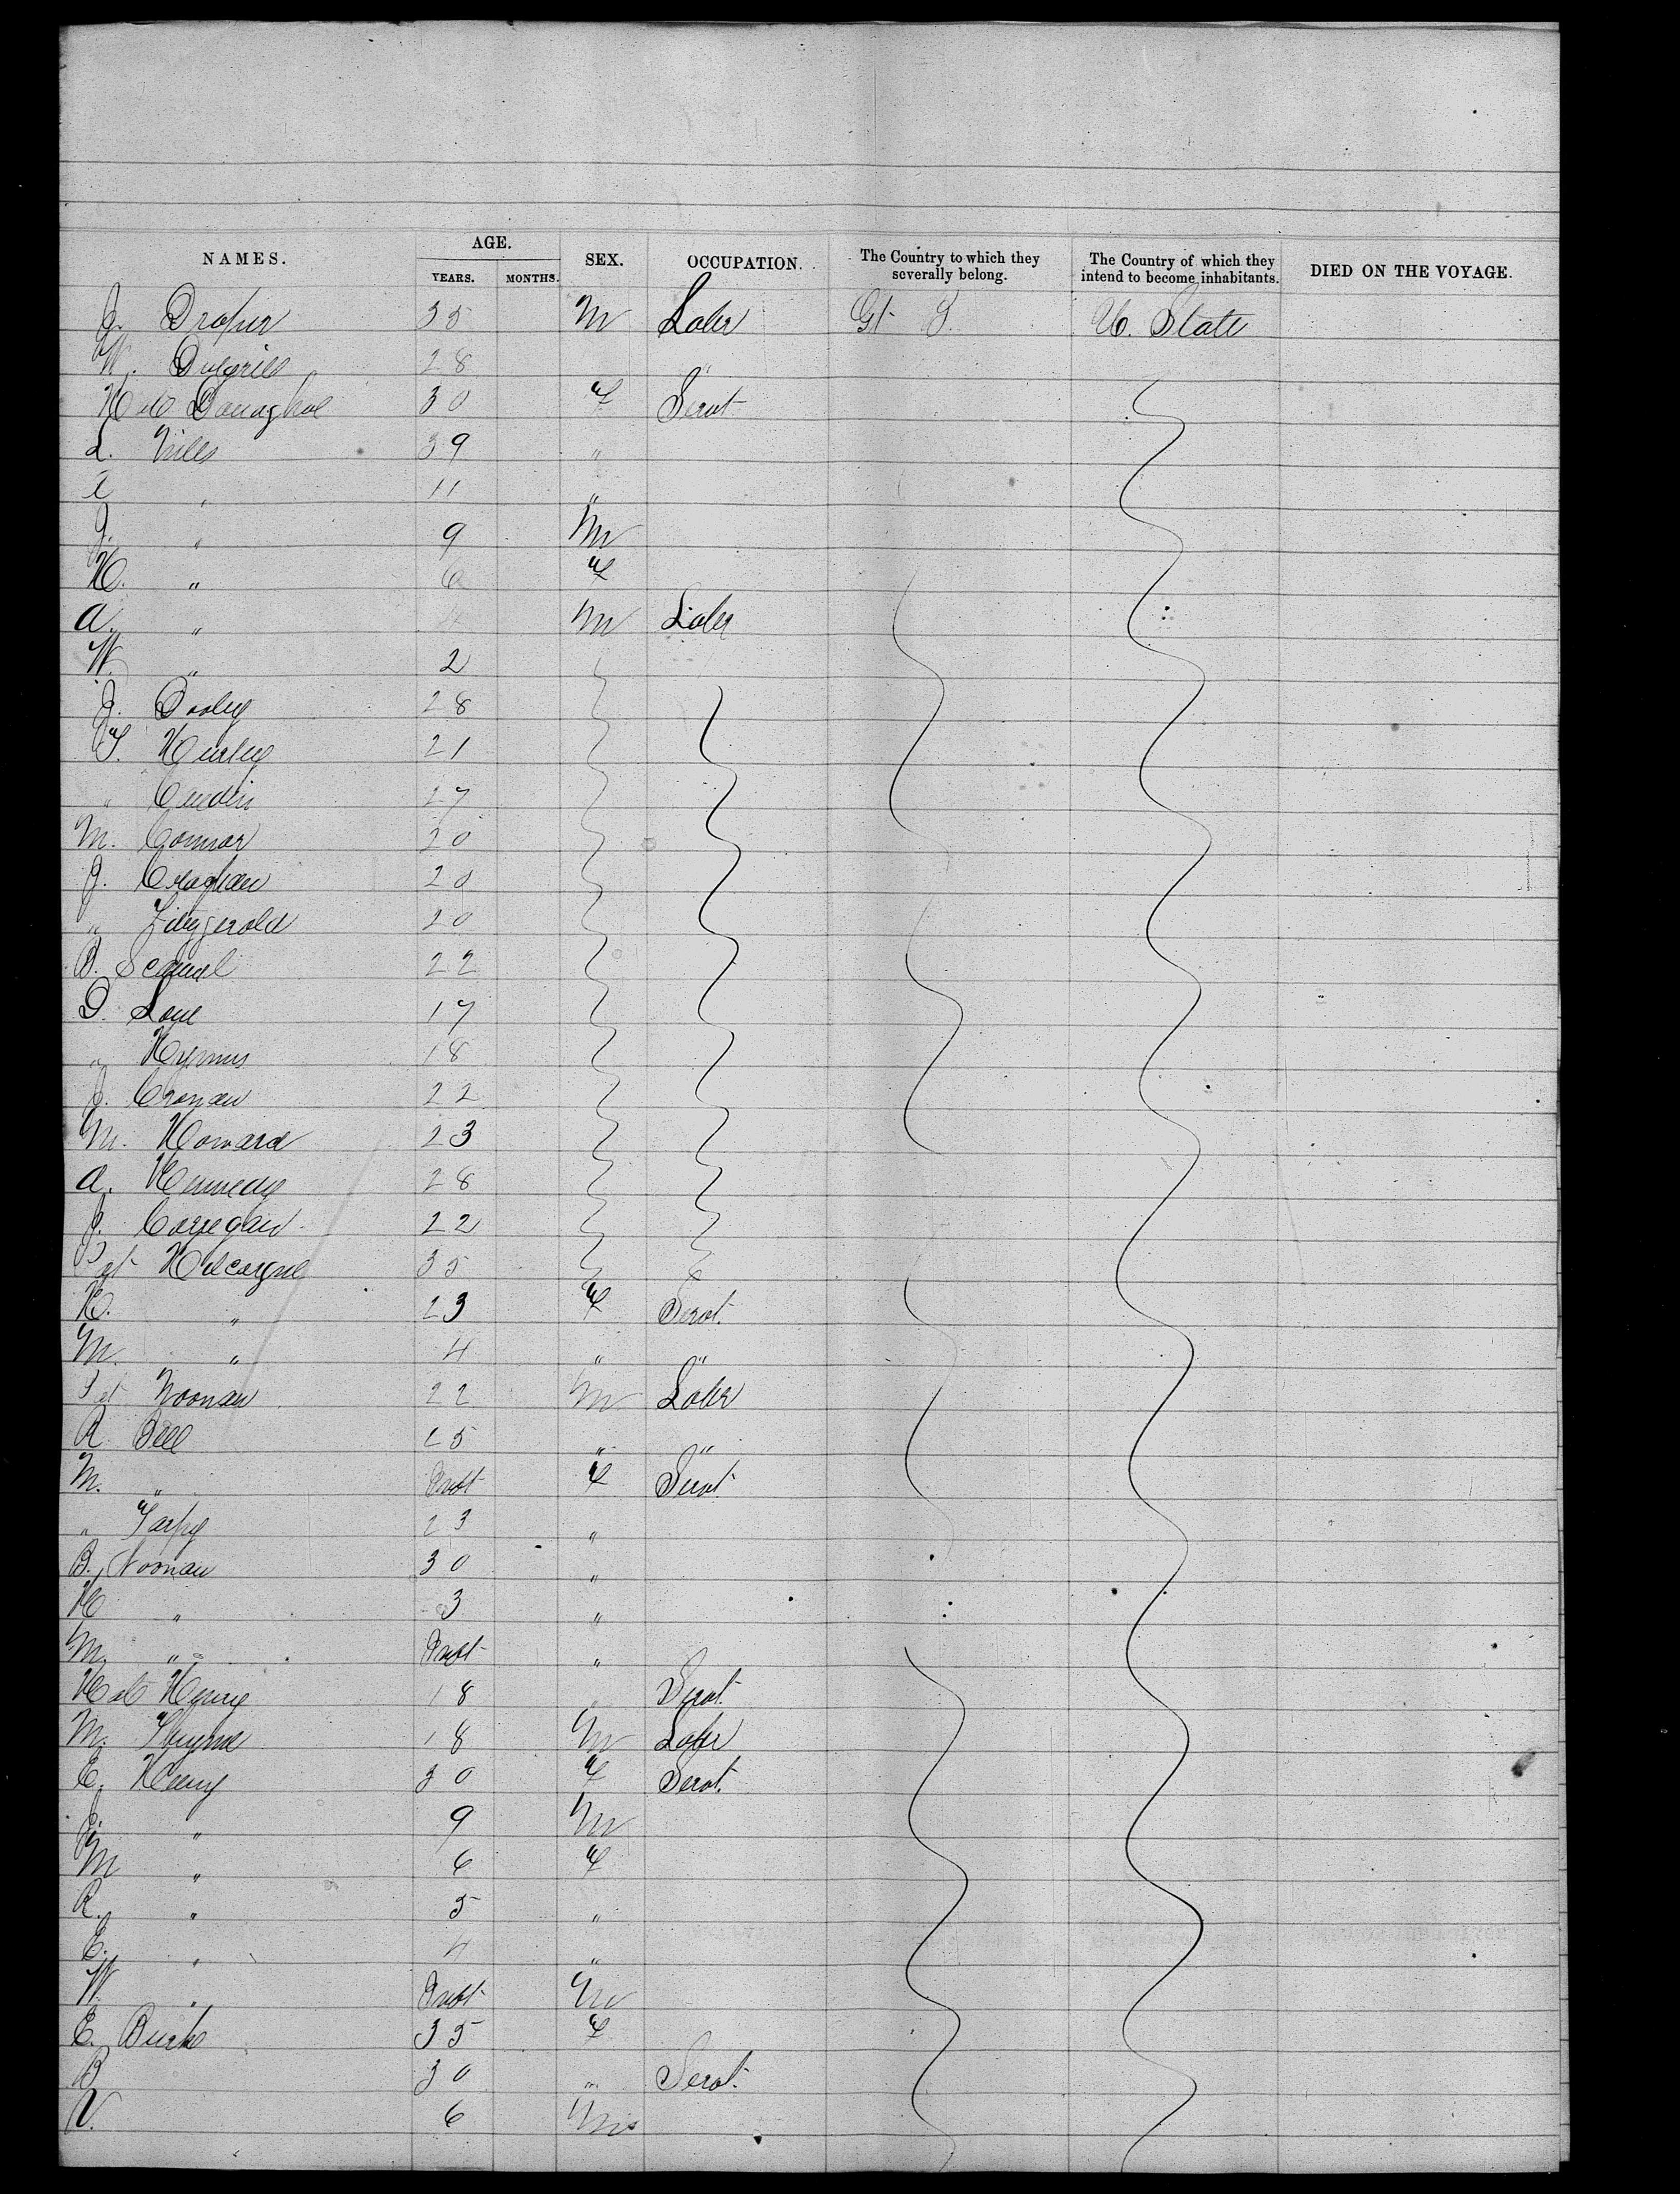 NAMES. AGE. YEARS. MONTHS. SEX. OCCUPATION. The Country to which they severally belong. The Country of which they intend to become inhabitants. DIED ON THE VOYAGE.
J. Draper 35 M Laber Gt U. State
W. 28 "
30 F Servt
L. Mills 39 "
" 11 "
J. " 9 M
K. " 6 F
A. " 4 M Laber
W. " 2
J. Dooley 28
T. Hurley 21
" 27
M. Connor 20
J. Craghan 20
" Fitzgerald 20
B. 22
D. 17
" 18
J. Cronan 22
M. Howard 23
A. Kennedy 28
J. Corregan 22
Pat 35
K. " 23 F Servt.
M. " 4 " "
Pat Noonan 22 M Laber
R. Bell 25 " "
M. " Inft F Servt
" Tarpy 23 "
B. Noonan 30 "
K " 3 "
M. " Inft "
18 " Servt
M. 18 M Laber
E. 30 F Servt.
J. " 9 M
M " 6 F
R. " 5 "
E. " 4 "
W. " Inft M
E. Burke 35 F
B 30 " Servt.
V. 6 M